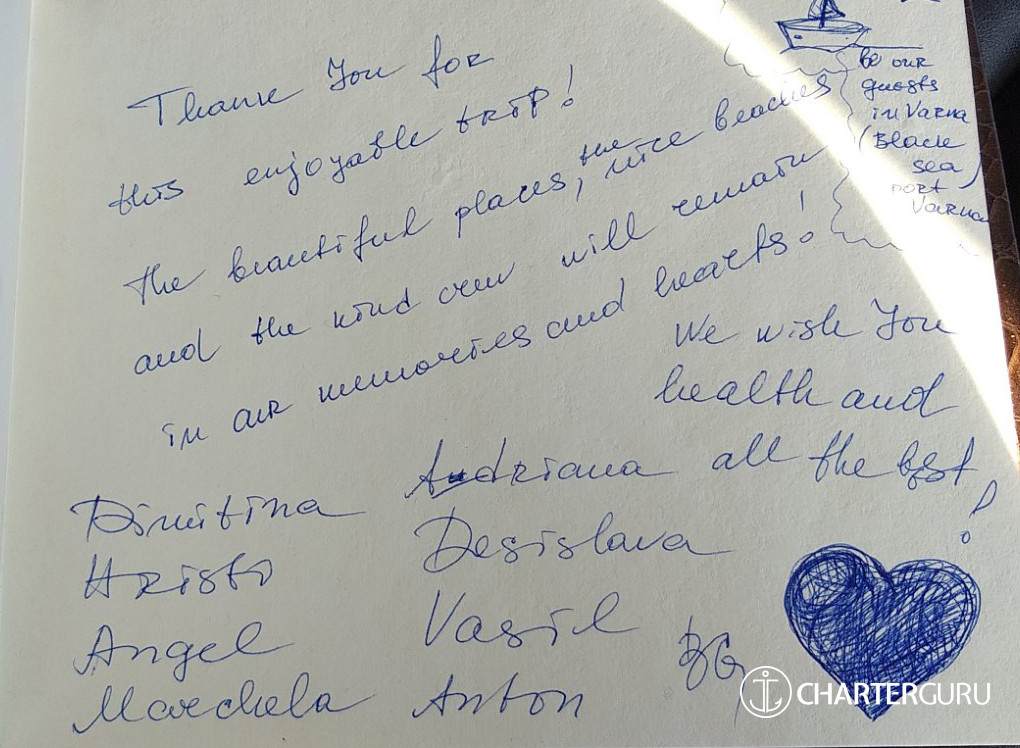 Thank You for
this enjoyable trip!
The beautiful places, the nice beaches
and the kind crew will remain
in our memories and hearts!
be our
guests
in Varna
(Black
sea)
port
Varna
We wish You
health and
all the best!
Dimitrina
Hristo
Angel
Marchela
Adriana
Desislava
Vasil
Anton
BG
CHARTERGURU